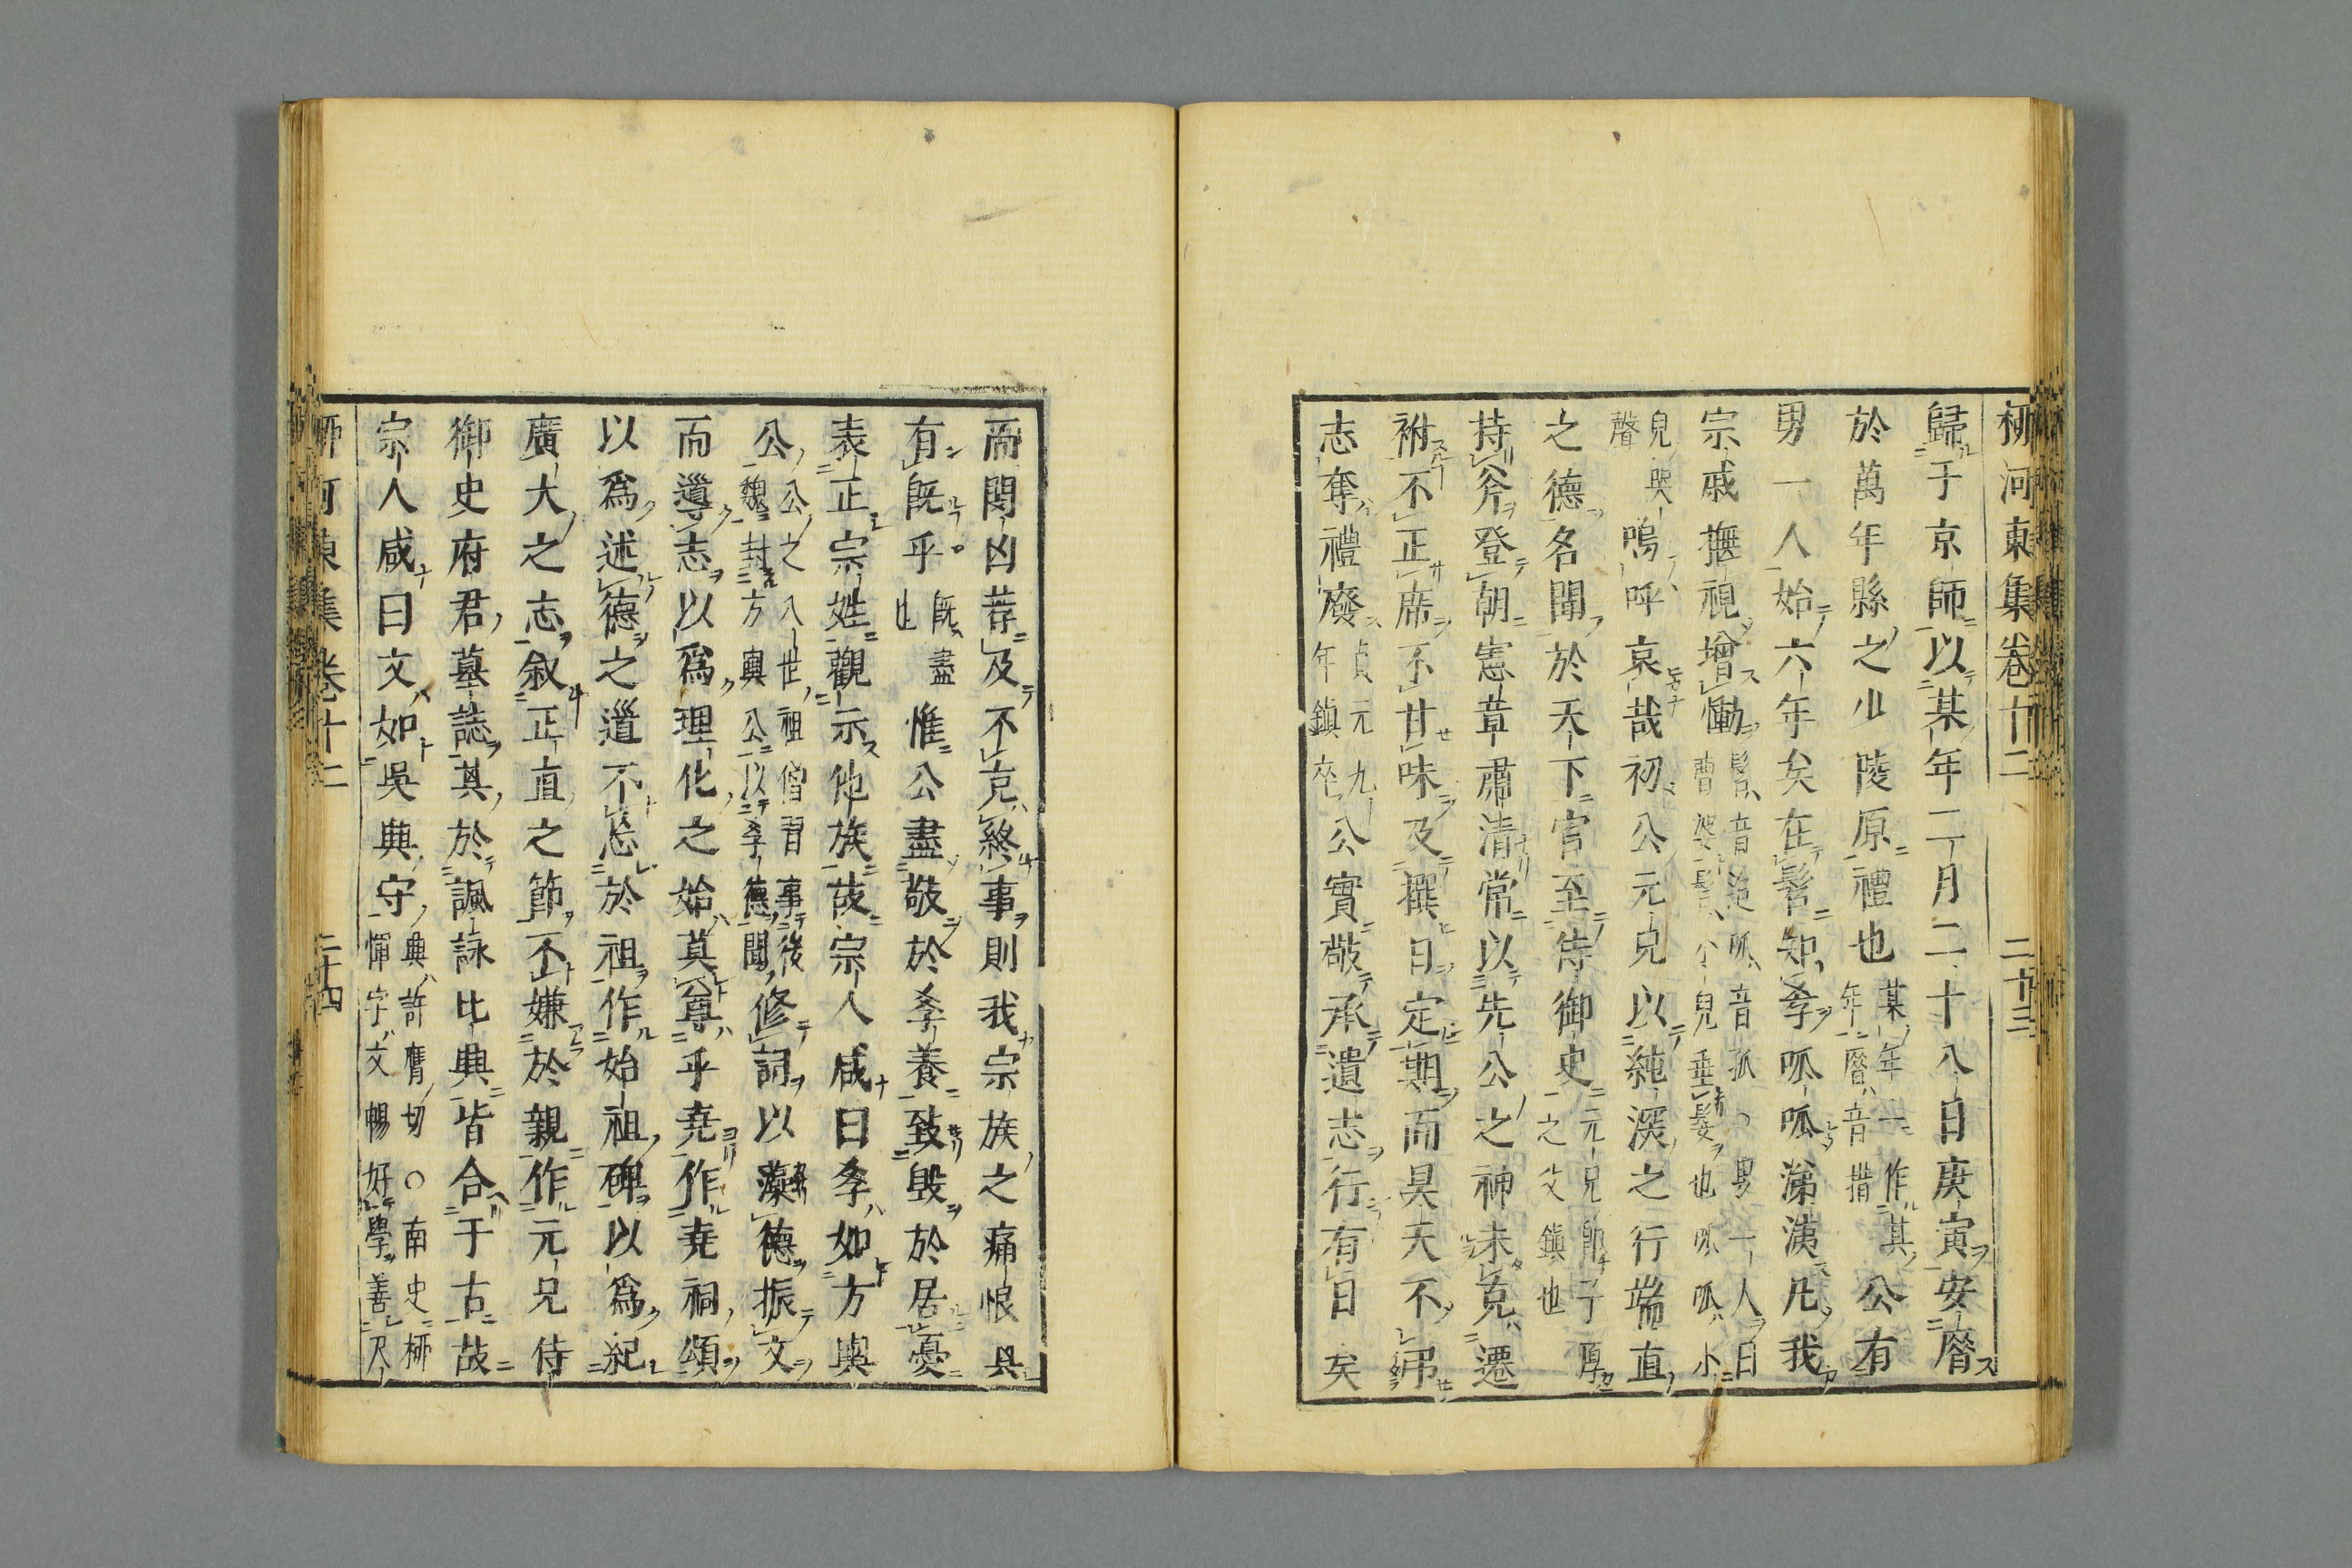 柳河東集卷十二 二十三
歸于京師以某年二月二十八日庚寅安厝
於萬年縣之少陵原禮也某年一作其年厝音措公有
男一人始六年矣在髫知孝呱呱涕洟凡我
宗戚撫視增慟髫音迢呱音孤○男一人曰曹婆髫小兒垂髮也呱呱小
兒哭聲嗚呼哀哉初公元兄以純深之行端直
之德名聞於天下官至侍御史元兄即子厚之父鎮也
持斧登朝憲章肅清常以先公之神未克遷
祔不正席不甘味及撰日定期而昊天不弔
志奪禮廢貞元九年鎮卒公實敬承遺志行有日矣
而閔凶荐及不克終事則我宗族之痛恨其
有既乎既盡也惟公盡敬於孝養致毀於居憂
表正宗姓觀示他族故宗人咸曰孝如方輿
公公之八世祖僧習事後魏封方輿公以孝德聞修詞以藻德振文
而導志以為理化之始莫尊乎堯作堯祠頌
以為述德之道不忘於祖作始祖碑以為紀
廣大之志叙正直之節不嫌於親作元兄侍
御史府君墓誌其於諷詠比興皆合于古故
宗人咸曰文如吳興守興許膺切○南史柳惲字文暢好學善尺
柳河東集卷十二 二十四